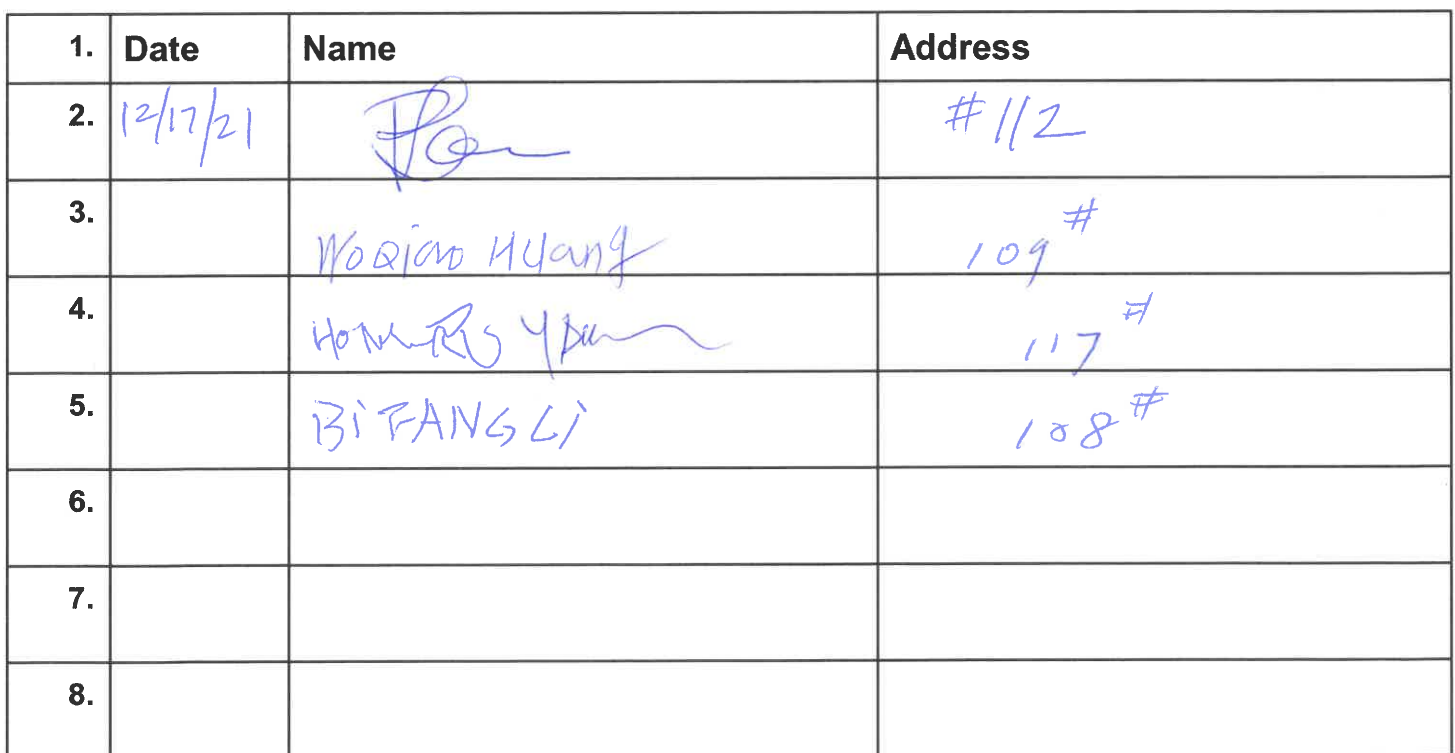 1. Date Name Address
2. 12/17/21 #112
3. WoQiao Huang 109#
4. 117#
5. Bi FANG Li 108#
6.
7.
8.